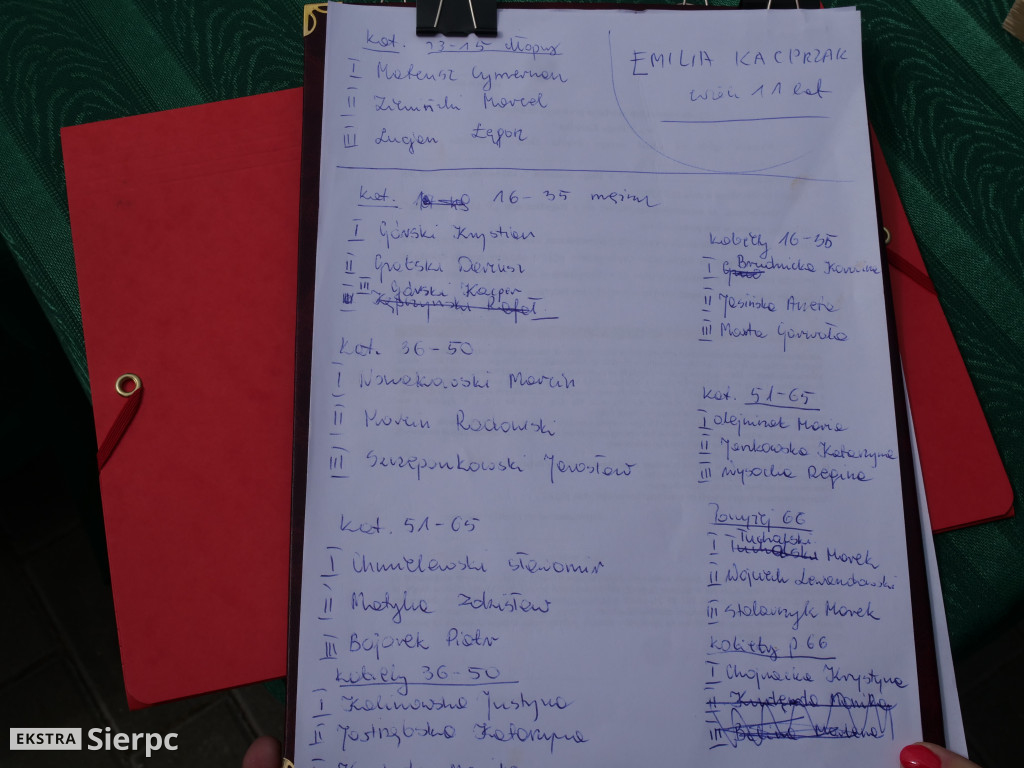 kat. 13-15 chłopcy
I Mateusz Cymerman
II Ziemiński Marcel
III Lucjan
EMILIA KACPRZAK
wiek 11 lat
kat. 16-35 mężcz
I Górski Krystian
II Gratski Dariusz
III Górski Kacper
kat. 36-50
I Nowakowski Marcin
II Marcin Radowski
III Szczepankowski Jarosław
kat. 51-65
I Chmielewski Sławomir
II Matyka Zdzisław
III Bajorek Piotr
kobiety 36-50
I Kalinowska Justyna
II Jastrzębska Katarzyna
kobiety 16-35
I Brudnicka Karolina
II Jasińska Aneta
III Marta Gawroń
kat. 51-65
I Olejniczak Maria
II Jankowska Katarzyna
III Wysocka Regina
Powyżej 66
I Tuchalski Marek
II Wojciech Lewandowski
III Stolarczyk Marek
kobiety p 66
I Chojnacka Krystyna
EKSTRA Sierpc